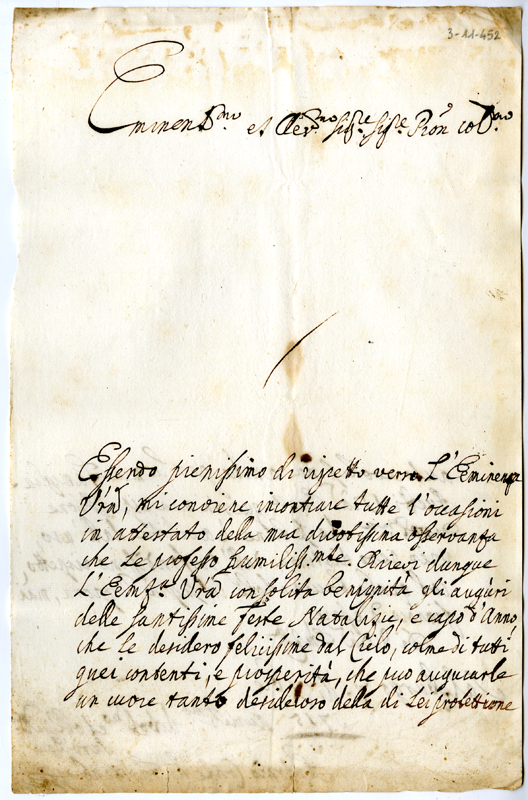 3-11-452
Eminen.mo et Rev.mo Sig.re Sig.re Pron Col.mo
Essendo pienissimo di rispetto verso L'Eminenza
Vrã, mi conviene incontrare tutte l'occasioni
in attestato della mia divotissima osservanza
che Le professo humiliss.mte. Ricevi dunque
L'Eemz.a Vrã con solita benignità gli augùri
delle santissime feste Natalizie, e capo d'Anno
che Le desidero felicissime dal Cielo, colme di tutti
quei contenti, e prosperità, che può augurarle
un cuore tanto desideroso della di Lei protettione